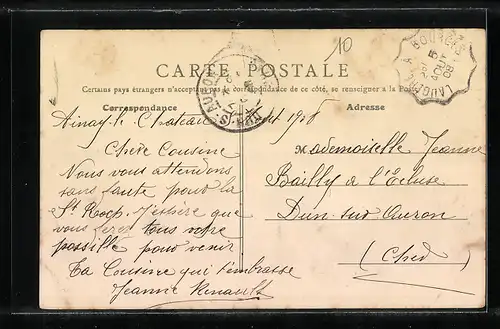 10
CARTE POSTALE
Certains pays étrangers n'acceptant pas la correspondance de ce côté, se renseigner à la Poste
Correspondance
Adresse
Ainay-le-Chateau 1908
Chère Cousine
Nous vous attendons
sans faute pour la
St Roch. J'espère que
vous ferez tous votre
possible pour venir
Ta Cousine qui t'embrasse
Jeanne Renault
Mademoiselle Jeanne
Bailly à l'Ecluse
Dun-sur-Auron
(Cher)
BOURGES
15
AOUT
08